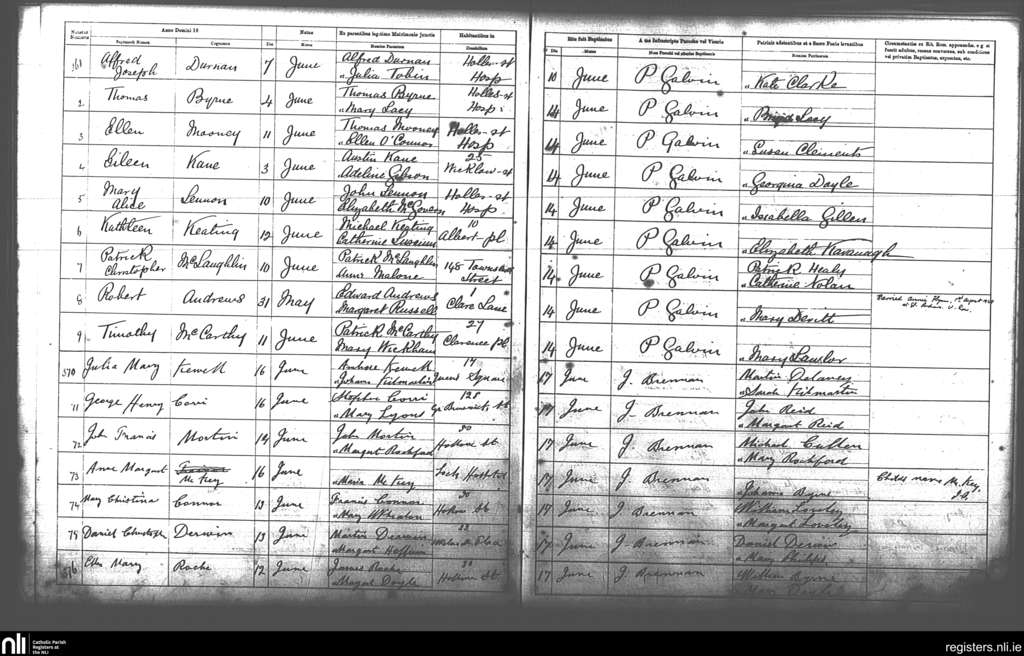 Anno Domini 18
Natus
Ex parentibus legitimo Matrimonio junctis
Habitantibus in
Die
Mense
361 Alfred Joseph Durnan 7 June Alfred Durnan Julia Tobin Holles-st Hosp
2 Thomas Byrne 4 June Thomas Byrne Mary Lacy Holles-st Hosp
3 Ellen Mooney 11 June Thomas Mooney Ellen O'Connor Holles-st Hosp
4 Eileen Kane 3 June Austin Kane Adeline Gibson 25 Wicklow-st
5 Mary Alice Lennon 10 June John Lennon Elizabeth McGovern Holles-st Hosp
6 Kathleen Keating 12 June Michael Keating Catherine 10 Albert pl
7 Patrick Christopher McLaughlin 10 June Patrick McLaughlin Annie Malone 145 Townsend Street
8 Robert Andrews 31 May Edward Andrews Margaret Russell 1 Clare Lane
9 Timothy McCarthy 11 June Patrick McCarthy Mary Wickham 27 Clarence pl
370 Julia Mary Kewell 16 June Ambrose Kewell Johanna Fielmartin 14 Queens Square
71 George Henry Corri 16 June Stephen Corri Mary Lyons 128 Gt Brunswick St
72 John Francis Martin 14 June John Martin Margaret Rochford 30 Holles St
73 Anne Margaret McKey 16 June Maria McKey Lock Hospital
74 Mary Christina Connor 13 June Francis Connor Mary Wheaton 30 Holles St
75 Daniel Christoph Derwin 13 June Martin Derwin Margaret 33
376 Ellen Mary Roche 12 June James Roche Margaret Doyle 30 Holles St
Die
Mense
A me Infrascripto Parocho vel Vicario
10 June P Galvin Kate Clarke
14 June P Galvin Brigid Lacy
14 June P Galvin Susan Clements
14 June P Galvin Georgina Doyle
14 June P Galvin Isabella Gillen
14 June P Galvin Elizabeth Kavanagh
14 June P Galvin Patrick Healy Catherine Nolan
14 June P Galvin Mary Devitt
14 June P Galvin Mary Lawlor
17 June J. Brennan Martin Delaney Sarah Fielmartin
17 June J. Brennan John Reid Margaret Reid
17 June J. Brennan Michael Cullen Mary Rochford
17 June J. Brennan Johanna Byrne Childs name McKey. J.B.
17 June J. Brennan William Lovely Margaret Lovely
17 June J. Brennan Daniel Derwin Mary Phillips
17 June J. Brennan William Byrne Mary Doyle
nli
Catholic Parish
Registers at
the NLI
registers.nli.ie